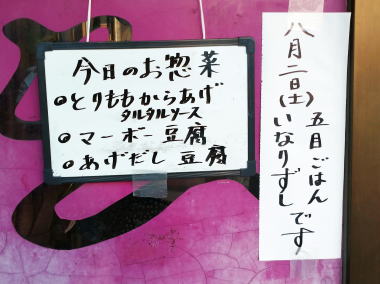 今日のお惣菜
●とりももからあげ
タルタルソース
●マーボー豆腐
●あげだし豆腐
八月二日(土)五目ごはん
いなりずしです